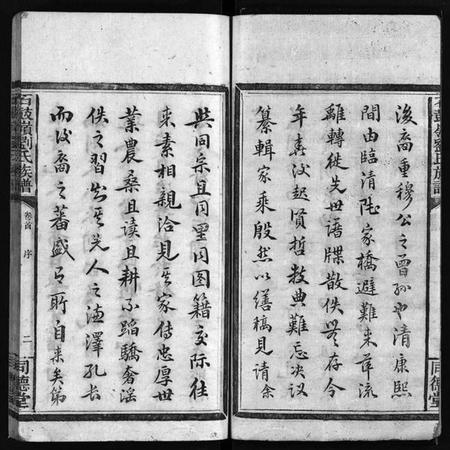 後裔重穆公之曾孫也清康熙
間由臨清陡家橋避難来萍流
離轉徙先世語牒散佚無存今
年春汝起賢哲敦典難忘决议
纂輯家乘殷然以繕稿見請余
與同宗且同里同图籍交际往
来素相親洽見其家傳忠厚世
業農桑且读且耕不蹈驕奢淫
佚之習知其先人之德澤孔长
而後裔之蕃盛有所自来矣第
石鼓嶺劉氏族譜
卷首
序
二
同德堂
石鼓嶺劉氏族譜
同德堂